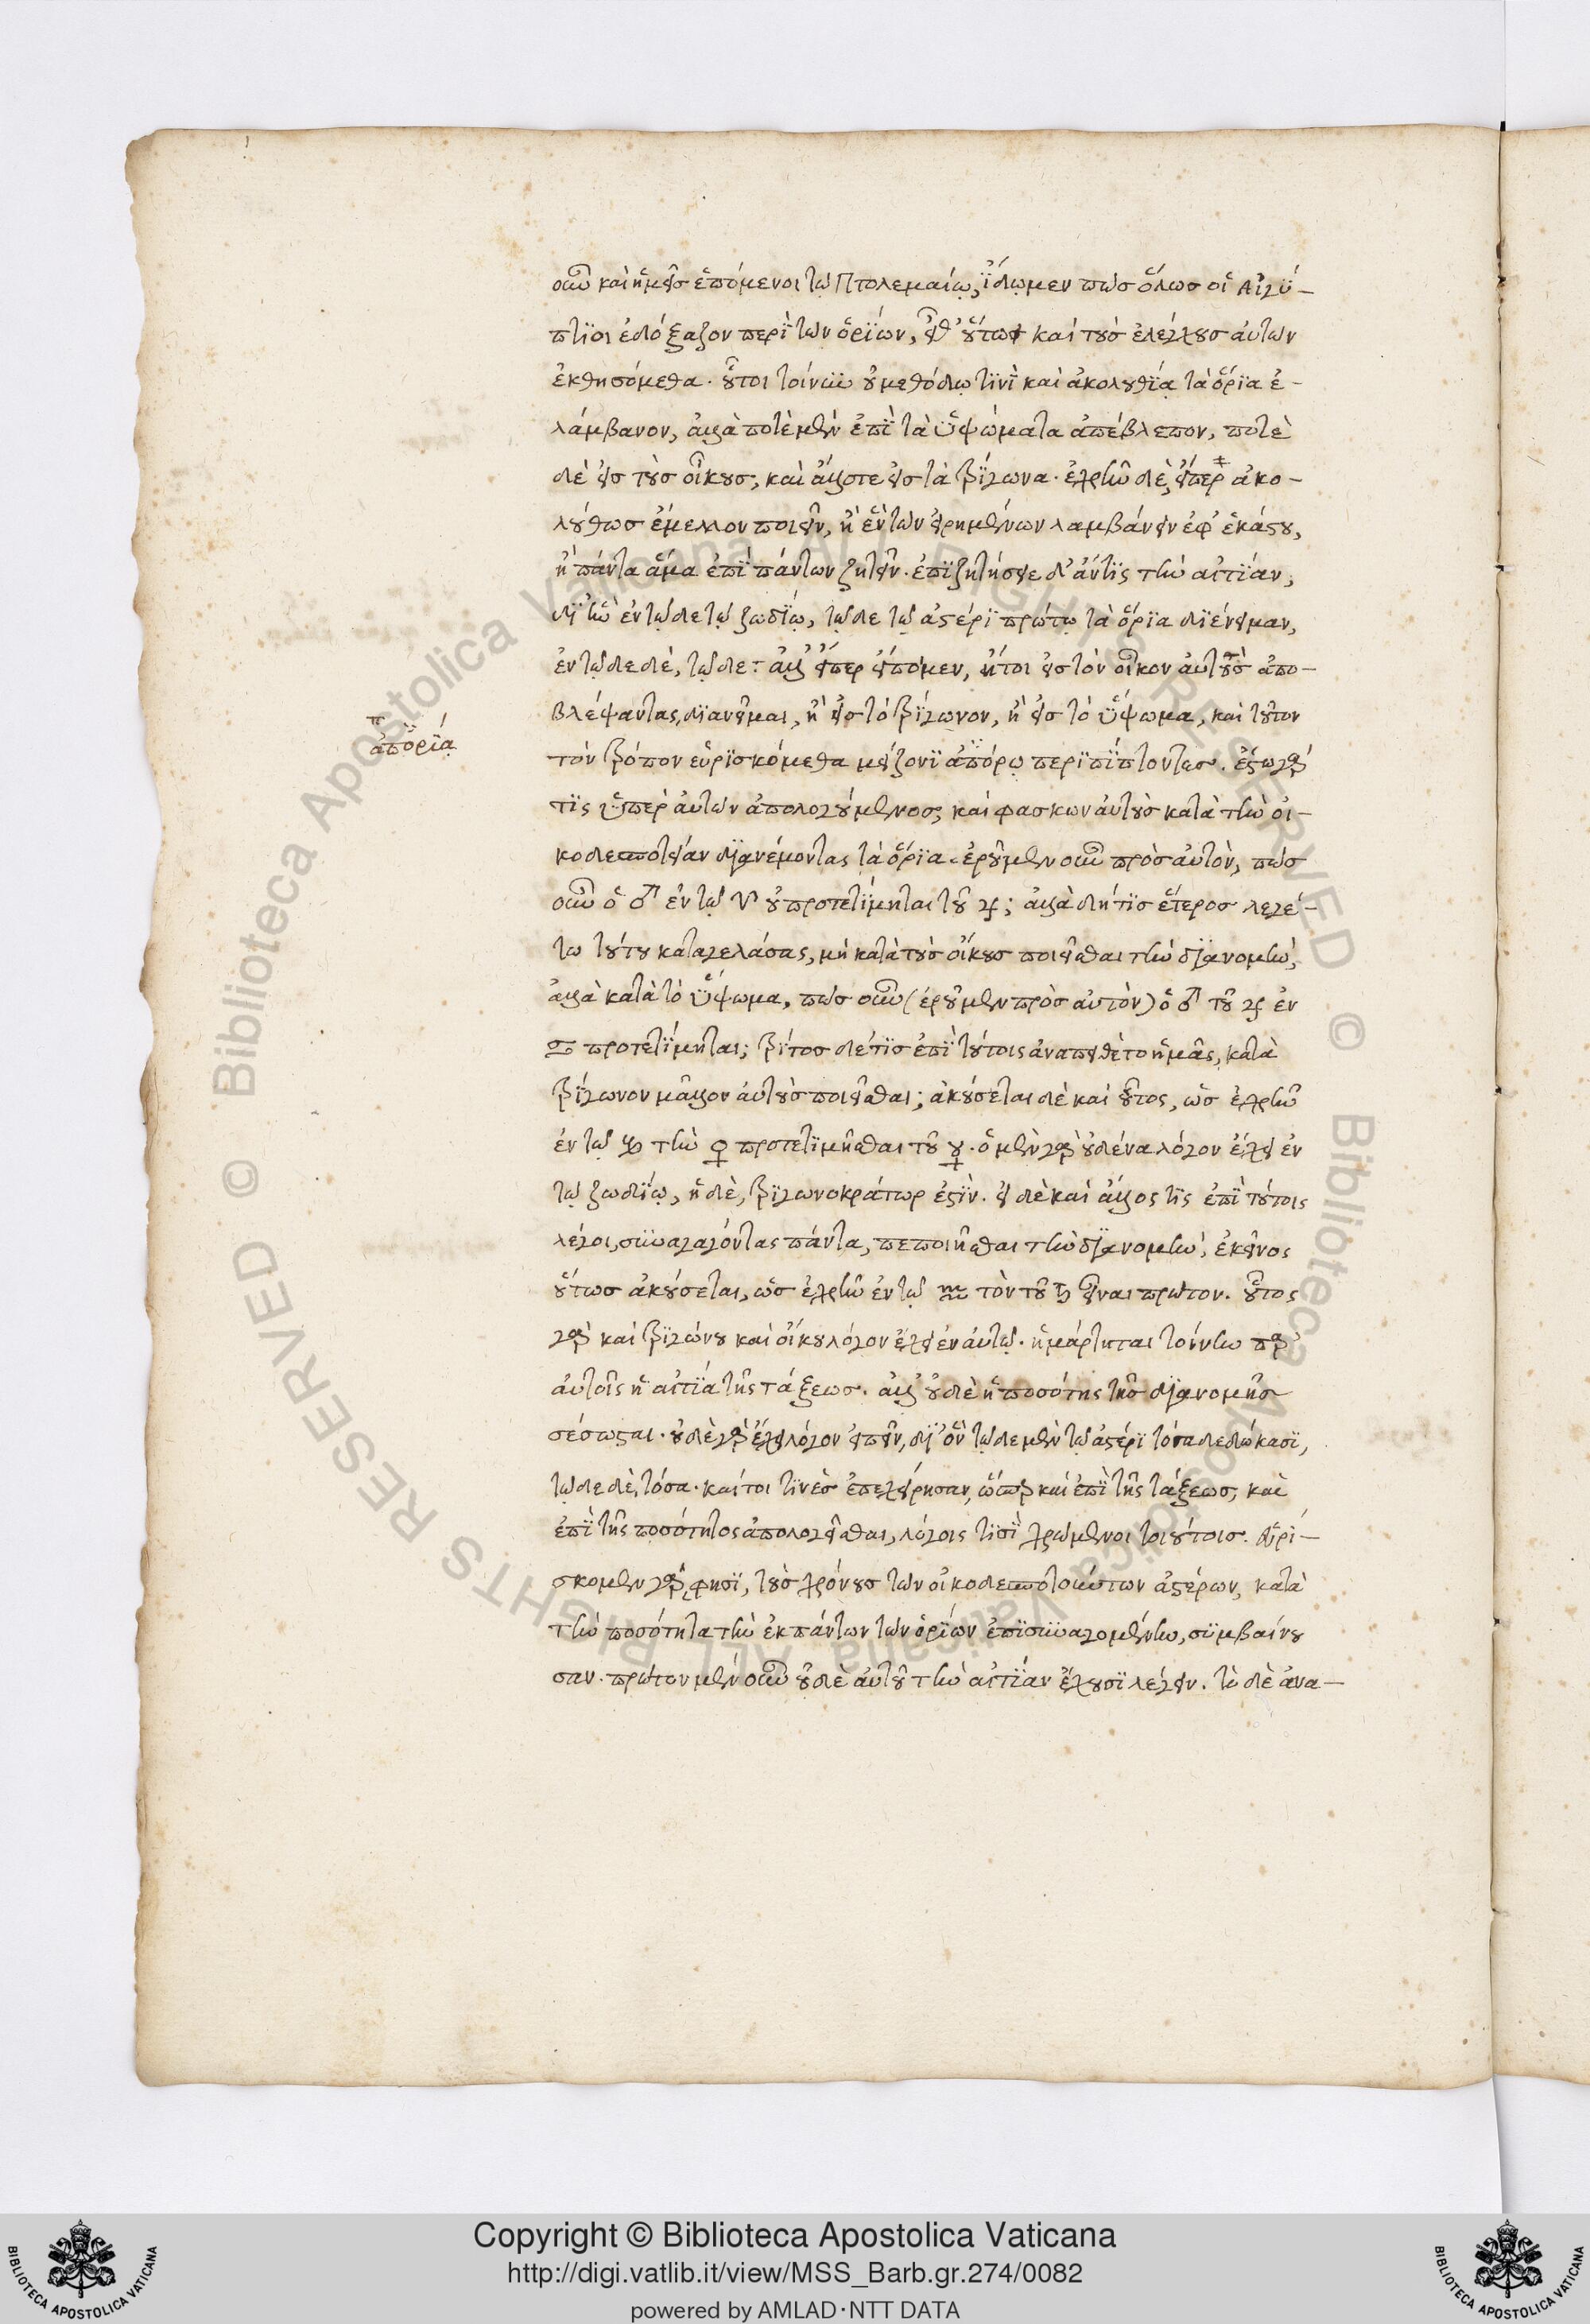 οὖν καὶ ἡμεῖς ἑπόμενοι τῷ Πτολεμαίῳ, ἴδωμεν πῶς ὅλως οἱ Αἰγύ-
πτιοι ἐδόξαζον περὶ τῶν ὁρίων, εἶθ' οὕτως καὶ τοὺς ἐλέγχους αὐτῶν
ἐκθησόμεθα. οὗτοι τοίνυν οὐ μεθόδῳ τινὶ καὶ ἀκολουθίᾳ τὰ ὅρια ἐ-
λάμβανον, ἀλλὰ ποτὲ μὲν ἐπὶ τὰ ὑψώματα ἀπέβλεπον, ποτὲ
δὲ εἰς τοὺς οἴκους, καὶ ἄλλοτε εἰς τὰ τρίγωνα. ἐχρῆν δὲ, εἴπερ ἀκο-
λούθως ἔμελλον ποιεῖν, ἢ ἓν τῶν εἰρημένων λαμβάνειν ἐφ' ἑκάστου,
ἢ πάντα ἅμα ἐπὶ πάντων ζητεῖν. ἐπιζητήσειε δ' ἄν τις τὴν αἰτίαν,
δι' ἣν ἐν τῷδε τῷ ζωδίῳ, τῷδε τῷ ἀστέρι πρώτῳ τὰ ὅρια διένειμαν,
ἐν τῷδε δὲ, τῷδε: ἀλλ' εἴπερ εἴπομεν, ἤτοι εἰς τὸν οἶκον αὐτοὺς ἀπο-
βλέψαντας, διανεῖμαι, ἢ εἰς τὸ τρίγωνον, ἢ εἰς τὸ ὕψωμα, καὶ τοῦτον
τὸν τρόπον εὑρισκόμεθα μείζονι ἀπόρῳ περιπίπτοντες. ἔστω γάρ
ἀπορία
τις ὑπὲρ αὐτῶν ἀπολογούμενος, καὶ φάσκων αὐτοὺς κατὰ τὴν οἰ-
κοδεσποτείαν διανέμοντας τὰ ὅρια. ἐροῦμεν οὖν πρὸς αὐτὸν, πῶς
οὖν ὁ ♂ ἐν τῷ ♈ οὐ προτετίμηται τοῦ ♃; ἀλλὰ δή τις ἕτερος λεγέ-
τω τούτου καταγελάσας, μὴ κατὰ τοὺς οἴκους ποιεῖσθαι τὴν διανομὴν,
ἀλλὰ κατὰ τὸ ὕψωμα, πῶς οὖν (ἐροῦμεν πρὸς αὐτὸν) ὁ ♂ τοῦ ♃ ἐν
♋ προτετίμηται; τρίτος δέ τις ἐπὶ τούτοις ἀναπειθέτο ἡμᾶς, κατὰ
τρίγωνον μᾶλλον αὐτοὺς ποιεῖσθαι; ἀκούσεται δὲ καὶ οὗτος, ὡς ἐχρῆν
ἐν τῷ ♑ τὴν ♀ προτετιμῆσθαι τοῦ ☿. ὁ μὲν γὰρ οὐδένα λόγον ἔχει ἐν
τῷ ζωδίῳ, ἡ δὲ, τριγωνοκράτωρ ἐστίν. εἰ δὲ καὶ ἄλλος τις ἐπὶ τούτοις
λέγοι, συναγαγόντας πάντα, πεποιῆσθαι τὴν διανομὴν, ἐκεῖνος
οὕτως ἀκούσεται, ὡς ἐχρῆν ἐν τῷ ♒ τὸν τοῦ ♄ εἶναι πρῶτον. οὗτος
γὰρ καὶ τριγώνου καὶ οἴκου λόγον ἔχει ἐν αὐτῷ. ἡμάρτηται τοίνυν παρ'
αὐτοῖς ἡ αἰτία τῆς τάξεως. ἀλλ' οὐδὲ ἡ ποσότης τῆς διανομῆς
σέσωσται. οὐδὲ γὰρ ἔχει λόγον εἰπεῖν, δι' ὃν τῷδε μὲν τῷ ἀστέρι τόσα δεδώκασι,
τῷδε δὲ, τόσα. καίτοι τινὲς ἐπεχείρησαν, ὥσπερ καὶ ἐπὶ τῆς τάξεως, καὶ
ἐπὶ τῆς ποσότητος ἀπολογεῖσθαι, λόγοις τισὶ χρώμενοι τοιούτοις. εὑρί-
σκομεν γάρ, φησι, τοὺς χρόνους τῶν οἰκοδεσποτούντων ἀστέρων, κατὰ
τὴν ποσότητα τὴν ἐκ πάντων τῶν ὁρίων ἐπισυναγομένην, συμβαίνου
σαν. πρῶτον μὲν οὖν οὐδὲ αὐτοῦ τὴν αἰτίαν ἔχουσι λέγειν. τὸ δὲ ἀνα-
Copyright © Biblioteca Apostolica Vaticana
http://digi.vatlib.it/view/MSS_Barb.gr.274/0082
powered by AMLAD·NTT DATA
BIBLIOTECA APOSTOLICA VATICANA
BIBLIOTECA APOSTOLICA VATICANA
© Biblioteca Apostolica Vaticana ALL RIGHTS RESERVED
© Biblioteca Apostolica Vaticana ALL RIGHTS RESERVED